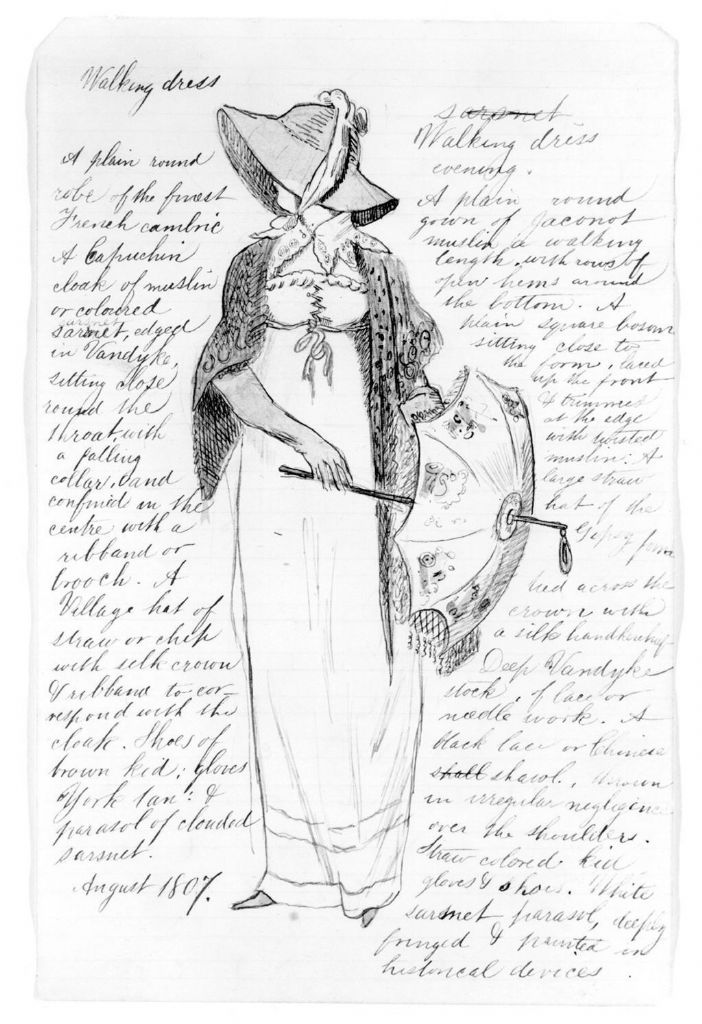 Walking dress
A plain round
robe of the finest
French cambric
A Capuchin
cloak of muslin
or coloured
sarsnet, edged
in Vandyke,
sitting close
round the
throat with
a falling
collar, and
confined in the
centre with a
ribband or
brooch. A
Village hat of
straw or chip
with silk crown
& ribband to cor-
respond with the
cloak. Shoes of
brown kid; gloves
York tan: &
parasol of clouded
sarsnet.
August 1807.
sarsnet
Walking dress
evening.
A plain round
gown of Jaconot
muslin, a walking
length, with rows of
open hems around
the bottom. A
plain square bosom
sitting close to
the form, laced
up the front
& trimmed
at the edge
with twisted
muslin: A
large straw
hat of the
Gipsy form
tied across the
crown with
a silk handkerchief
Deep Vandyke
stock, of lace or
needle work. A
black lace or Chinese
shall shawl, thrown
in irregular negligence
over the shoulders.
Straw colored kid
gloves & shoes. White
sarsnet parasol, deeply
fringed & painted in
historical devices.